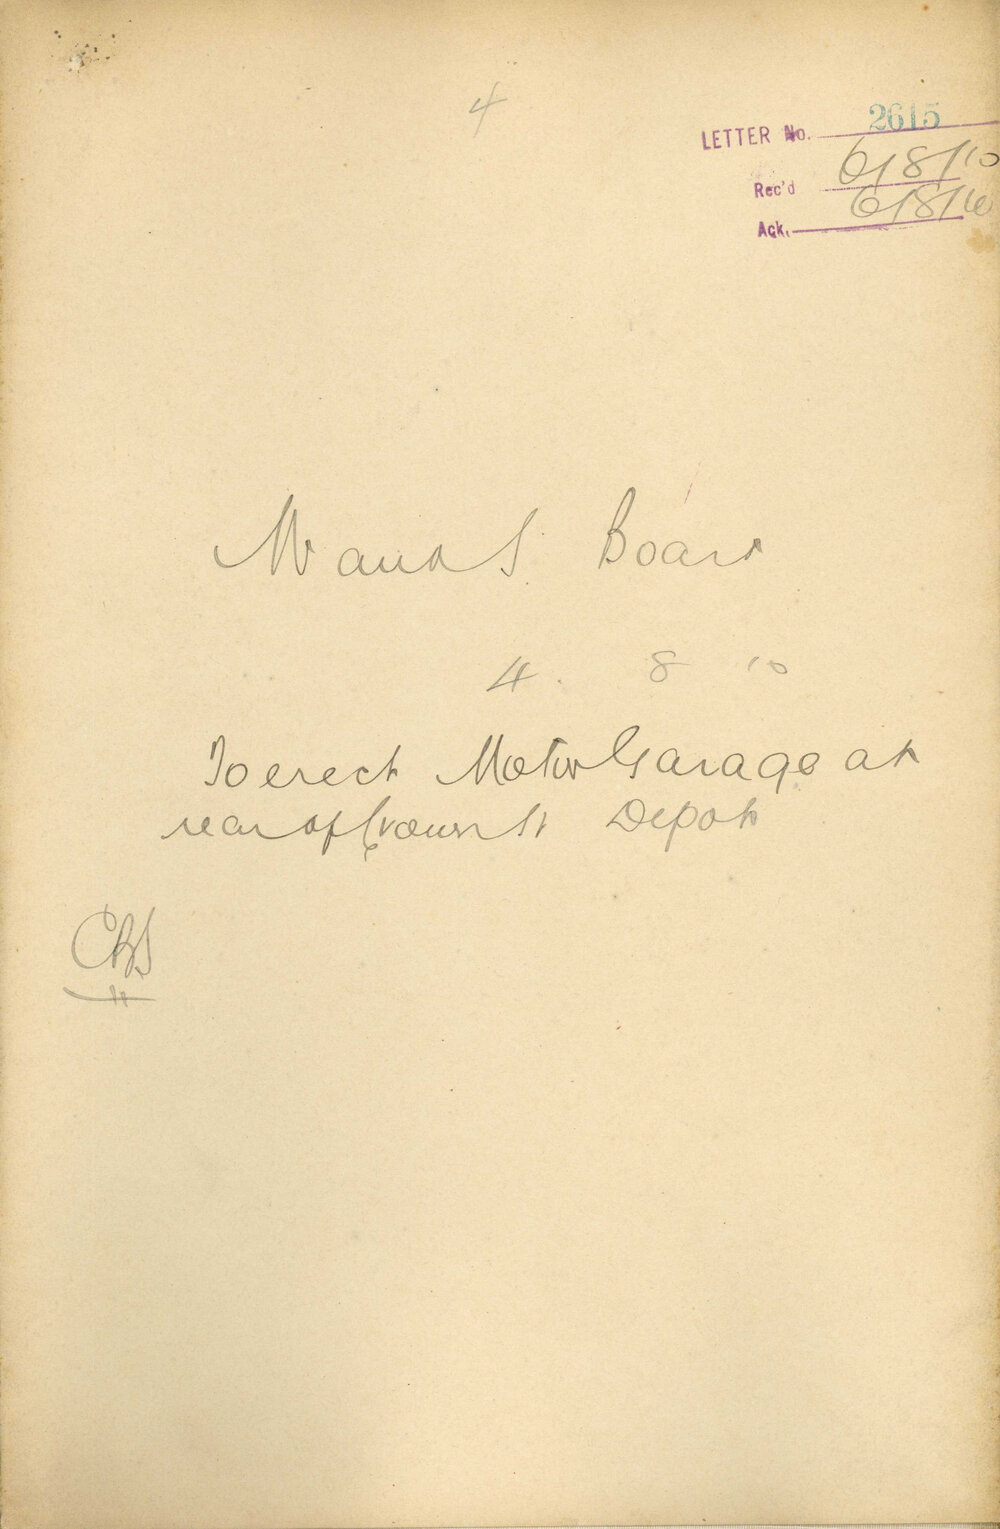 4
LETTER No. 2615
Rec'd 6/8/10
Ack. 6/8/10
W and S. Board
4. 8 10
To erect Motor Garage at
rear of Crown St Depot
CBS